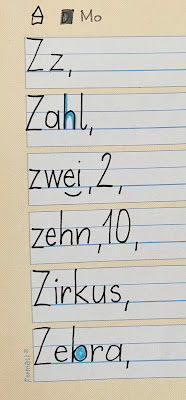 Mo
Zz,
Zahl,
zwei, 2,
zehn, 10,
Zirkus,
Zebra,